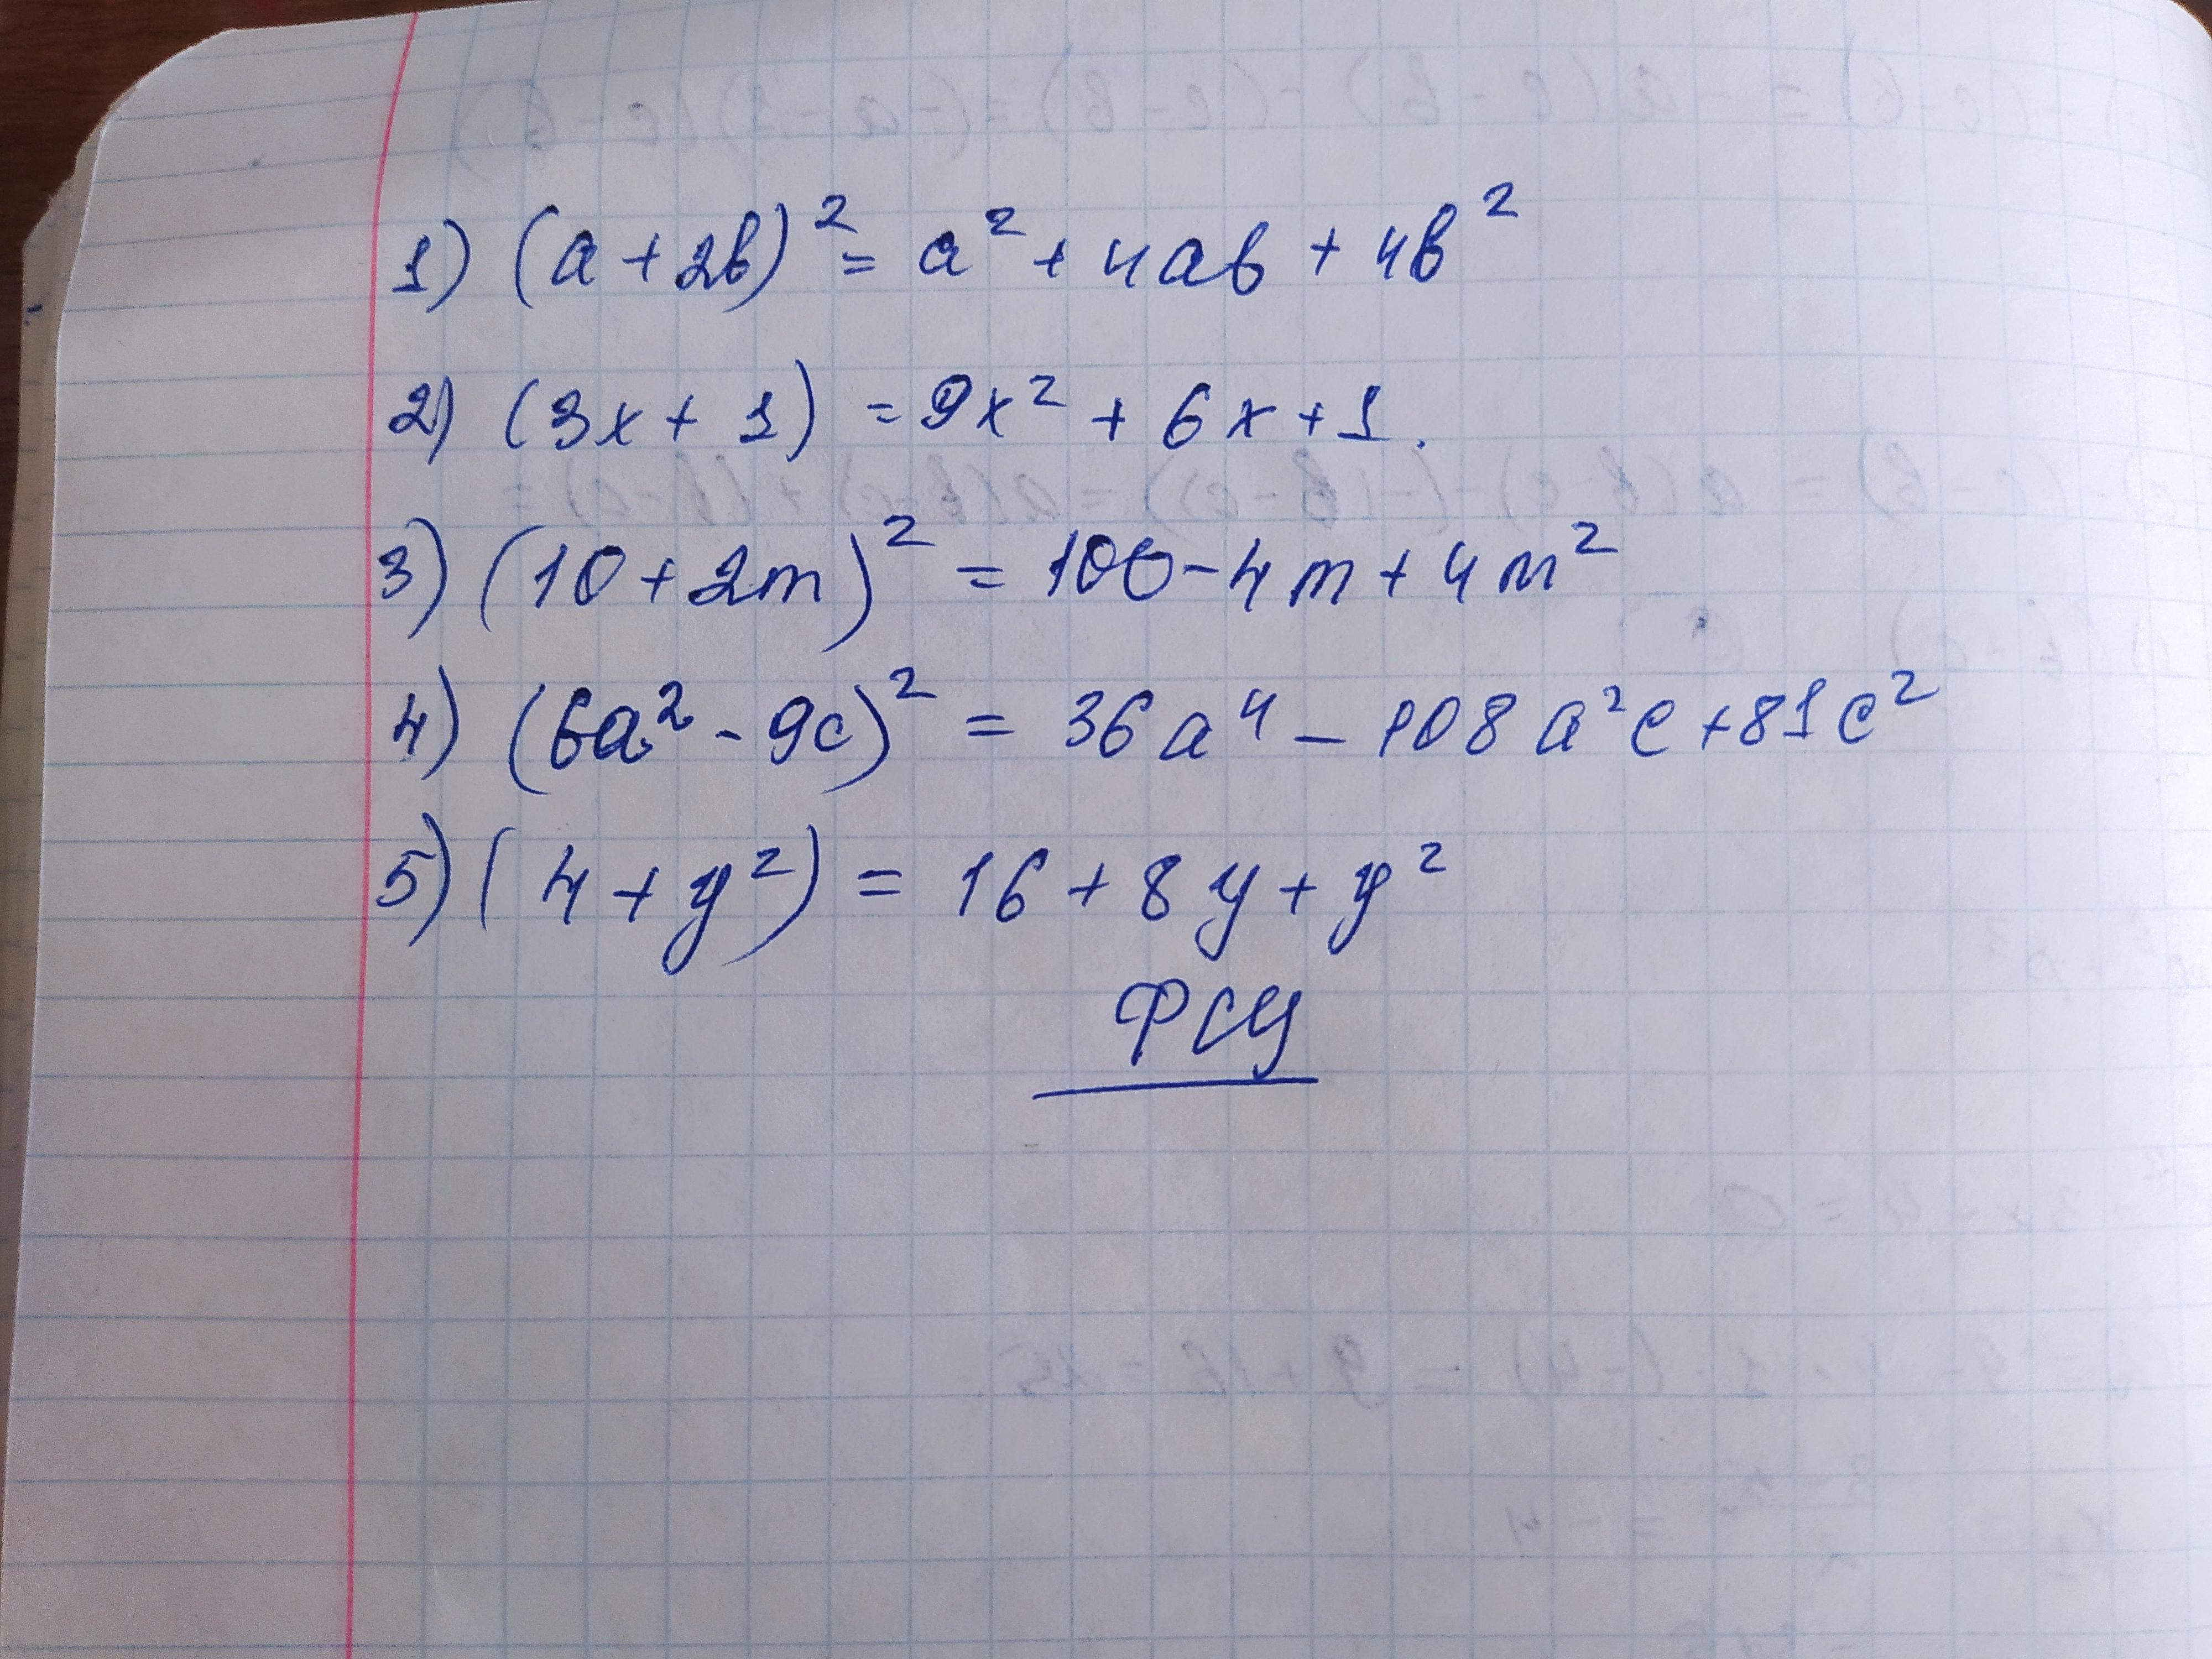 1) (a + 2b)² = a² + 4ab + 4b²
2) (3x + 1) = 9x² + 6x + 1.
3) (10 + 2m)² = 100 - 4m + 4m²
4) (6a² - 9c)² = 36a⁴ - 108a²c + 81c²
5) (4 + y²) = 16 + 8y + y²
ФСУ